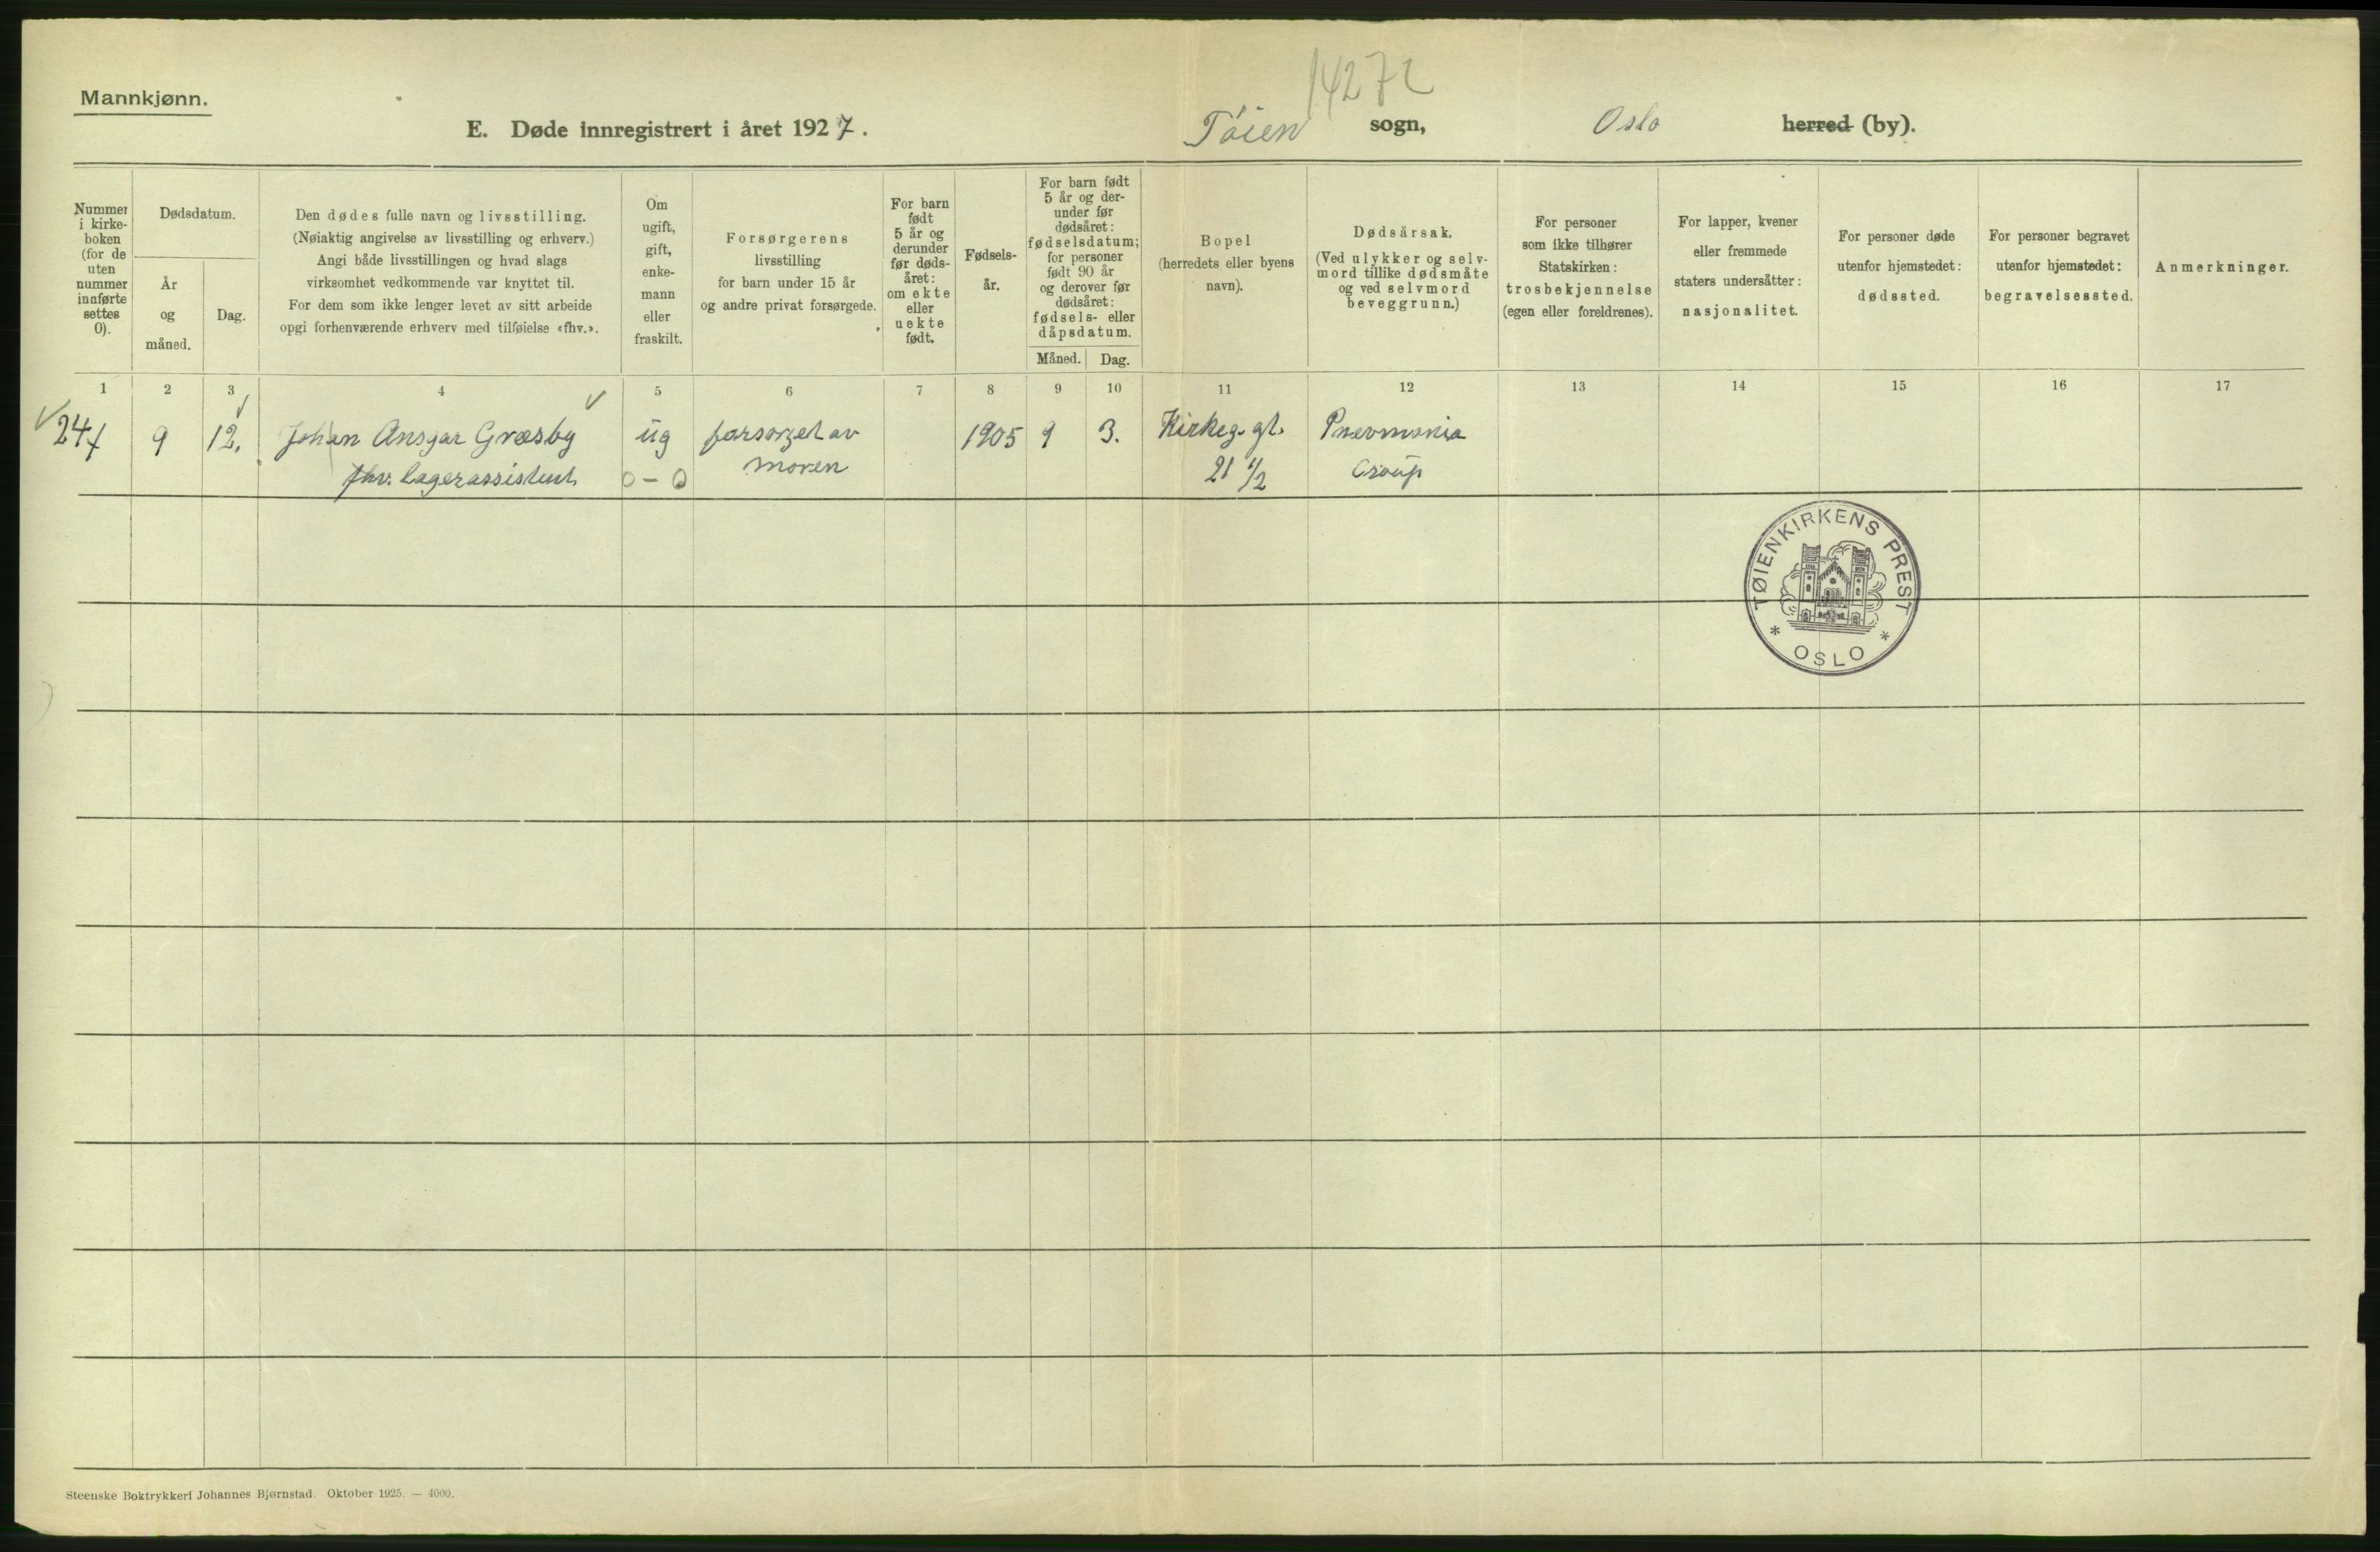 14272
Mannkjønn.
E. Døde innregistrert i året 1927.
Tøien sogn, Oslo herred (by).
Nummer
i kirke-
boken
(for de
uten
nummer
innførte
settes
0).
Dødsdatum.
År
og
måned.
Dag.
Den dødes fulle navn og livsstilling.
(Nøiaktig angivelse av livsstilling og erhverv.)
Angi både livsstillingen og hvad slags
virksomhet vedkommende var knyttet til.
For dem som ikke lenger levet av sitt arbeide
opgi forhenværende erhverv med tilføielse «fhv.».
Om
ugift,
gift,
enke-
mann
eller
fraskilt.
Forsørgerens
livsstilling
for barn under 15 år
og andre privat forsørgede.
For barn
født
5 år og
derunder
før døds-
året:
om ekte
eller
uekte
født.
Fødsels-
år.
For barn født
5 år og der-
under før
dødsåret:
fødselsdatum;
for personer
født 90 år
og derover før
dødsåret:
fødsels- eller
dåpsdatum.
Måned.
Dag.
Bopel
(herredets eller byens
navn).
Dødsårsak.
(Ved ulykker og selv-
mord tillike dødsmåte
og ved selvmord
beveggrunn.)
For personer
som ikke tilhører
Statskirken:
trosbekjennelse
(egen eller foreldrenes).
For lapper, kvener
eller fremmede
staters undersåtter:
nasjonalitet.
For personer døde
utenfor hjemstedet:
dødssted.
For personer begravet
utenfor hjemstedet:
begravelsessted.
Anmerkninger.
1 2 3 4 5 6 7 8 9 10 11 12 13 14 15 16 17
24 9 12. Johan Ansgar Græsby ug forsørget av 1905 9 3. Kirkeg. gt. Pnevmonia
fhv. lagerassistent 0 – 0 moren 21 1/2 Croup
TØIENKIRKENS PREST
* OSLO *
Steenske Boktrykkeri Johannes Bjørnstad. Oktober 1925. — 4000.